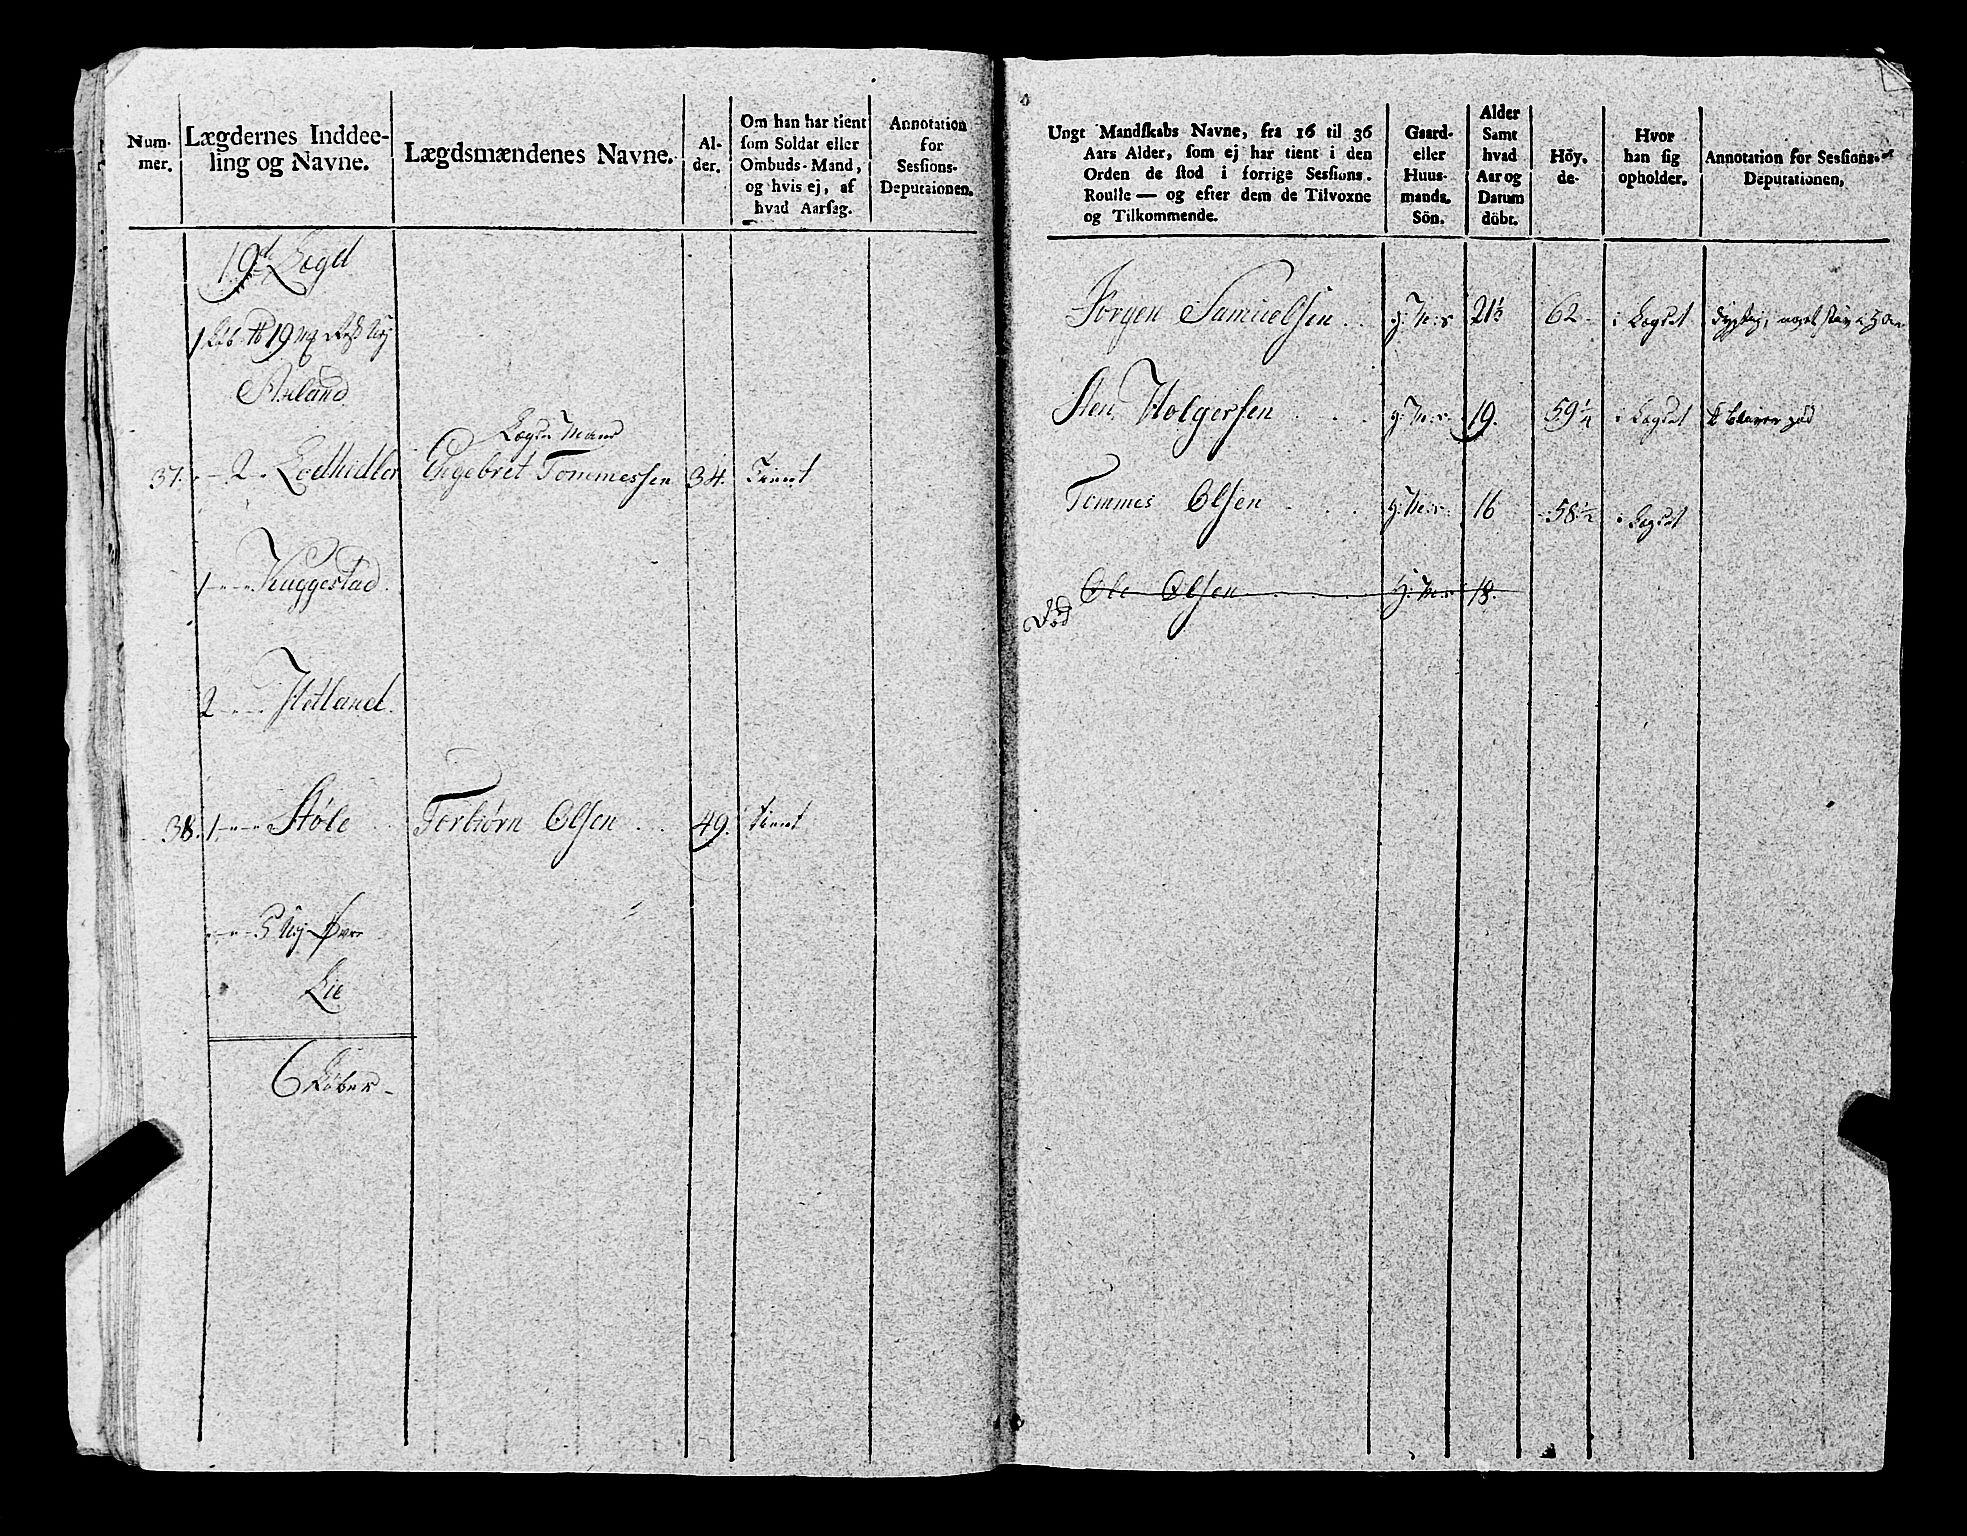 Num-
mer.
Lægdernes Inddee-
ling og Navne.
Lægdsmændenes Navne.
Al-
der.
Om han har tient
som Soldat eller
Ombuds-Mand,
og hvis ej, af
hvad Aarsag.
Annotation
for
Sessions-
Deputaionen.
19d Legd
1 19
Aseland
Legds Mand
37. 2 Loedhidler Engebret Tommessen 34. Tient
1 Kuggestad.
2 Hetland.
38. 1 Støle Torbiørn Olsen 49. tient
Øvre
Lie
6
Ungt Mandskabs Navne, fra 16 til 36
Aars Alder, som ej har tient i den
Orden de stod i forrige Sessions-
Roulle — og efter dem de Tilvoxne
og Tilkommende.
Gaard-
eller
Huus-
mands.
Sön.
Alder
Samt
hvad
Aar og
Datum
döbt.
Höy-
de-
Hvor
han sig
opholder.
Annotation for Sessions-
Deputationen,
Jørgen Samuelsen 21½ 62 i Legdet
Sten Holgersen 19. 59½ i Legdet
Tommes Olsen 16 58½ i Legdet
Ole Olsen 18.
Død